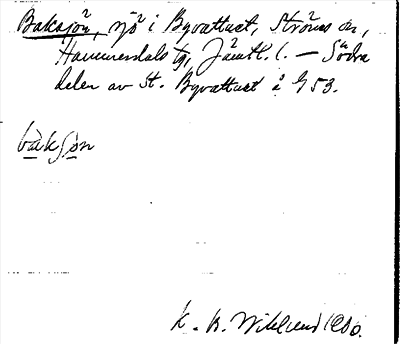 Baksjön, sjö i Byvattnet, Ströms sn,
Hammerdals tg, Jämtl. l. — Södra
delen av St. Byvattnet å G 53.
bàkʃön
K. B. Wiklund 1910.